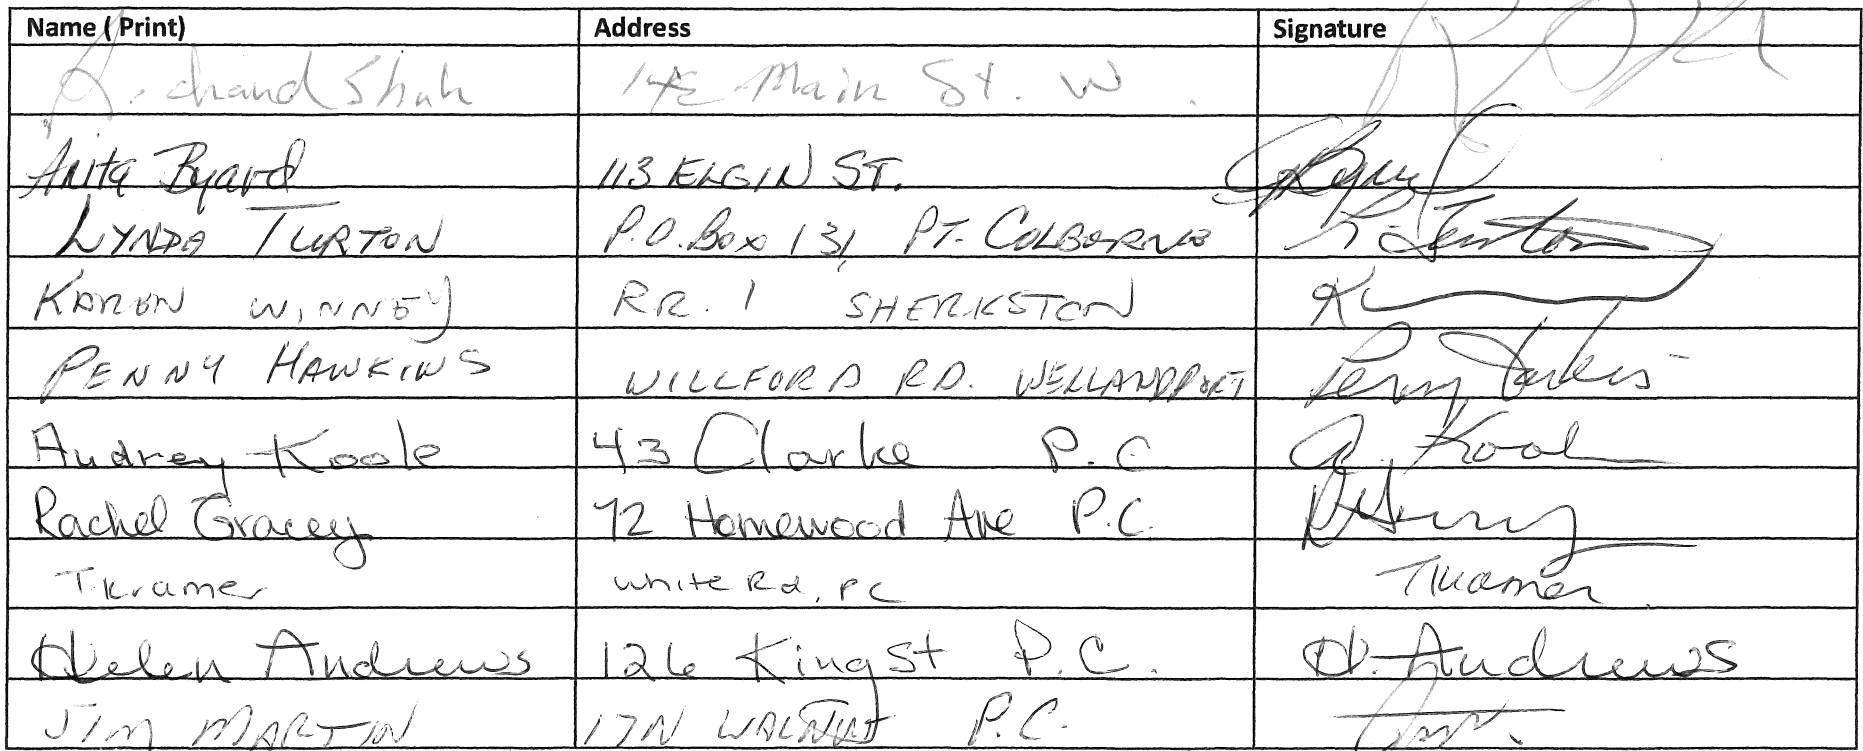 Name (Print) Address Signature
Shah Main St. W.
Anita Byard 113 ELGIN ST.
LYNDA TURTON P.O. Box 131, PT. COLBORNE
KAREN WINNEY RR. 1 SHERKSTON K
PENNY HAWKINS WILLFORD RD. WELLANDPORT Penny
Audrey Koole 43 Clarke P.C A. Koole
Rachel Gracey 72 Homewood Ave P.C.
T. Kramer White Rd, PC TKramer
Helen Andrews 126 King St P.C. H. Andrews
JIM MARTIN 17N WALNUT P.C.